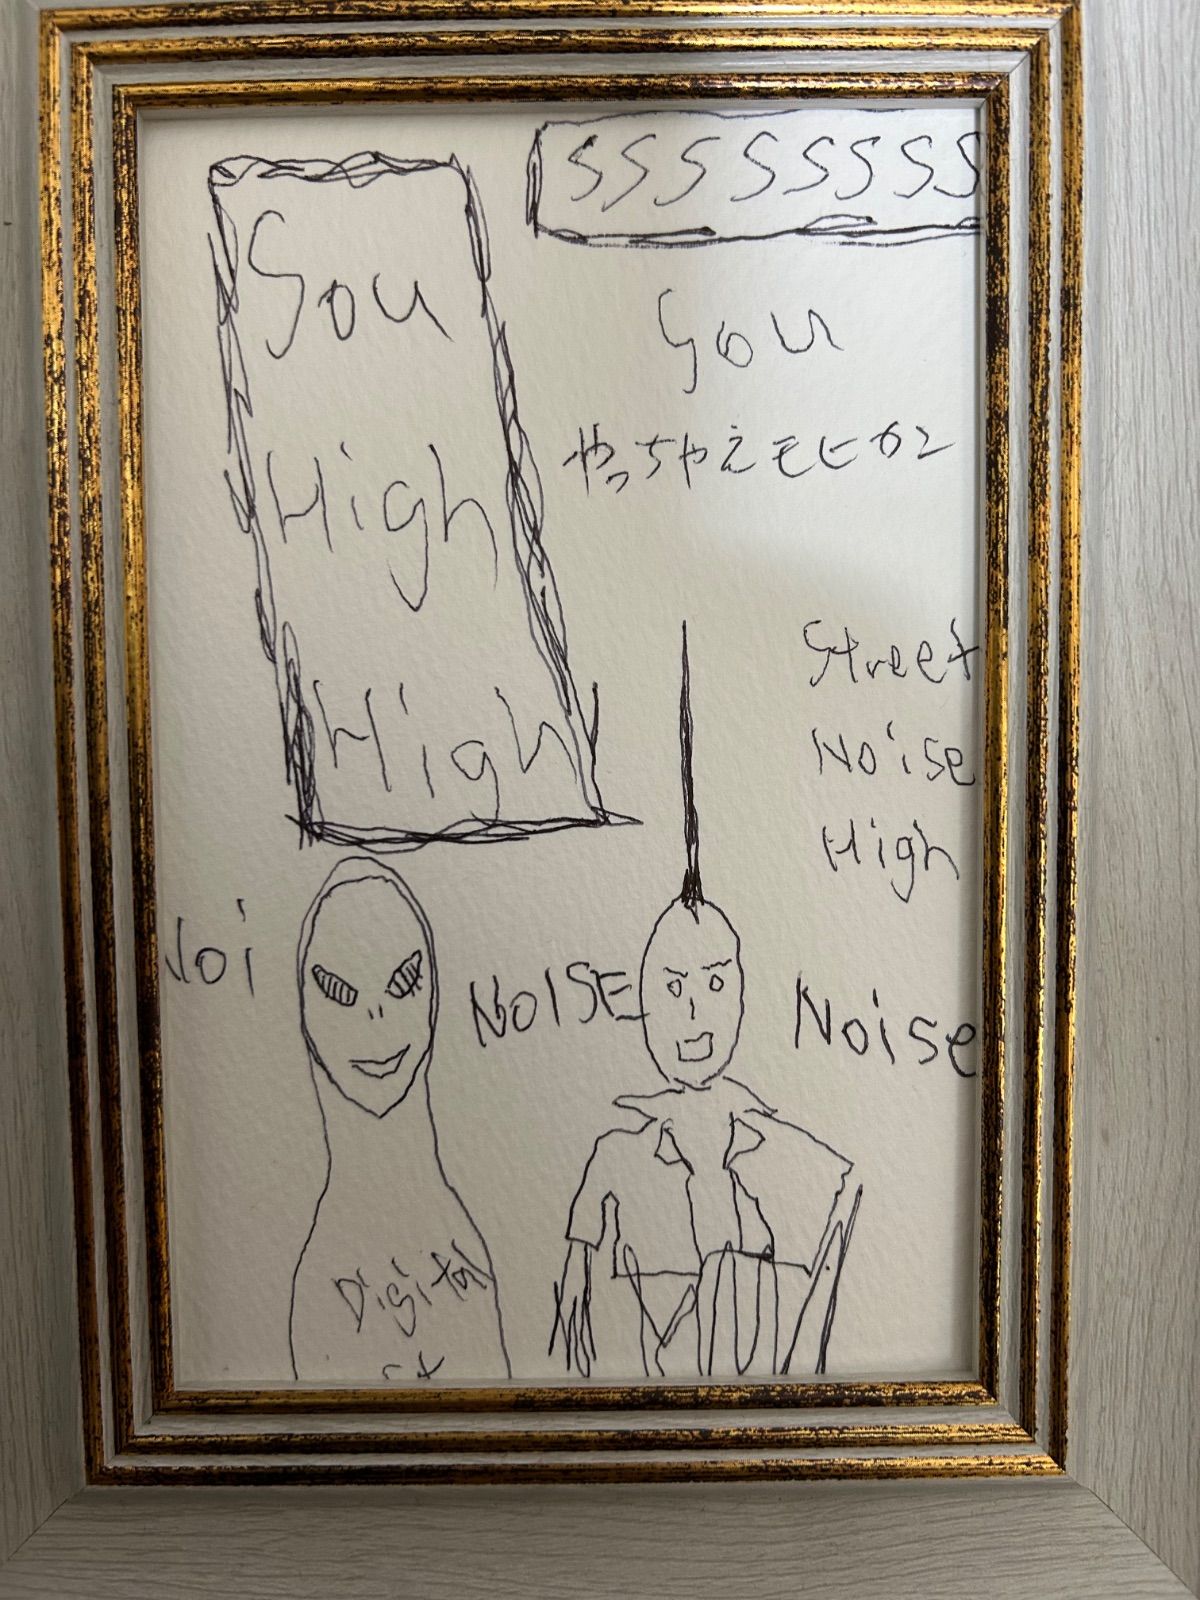 SSSSSSSS
Sou
High
High
Sou
やっちゃえモヒカン
Street
Noise
High
Noi
NOISE
Noise
Digital